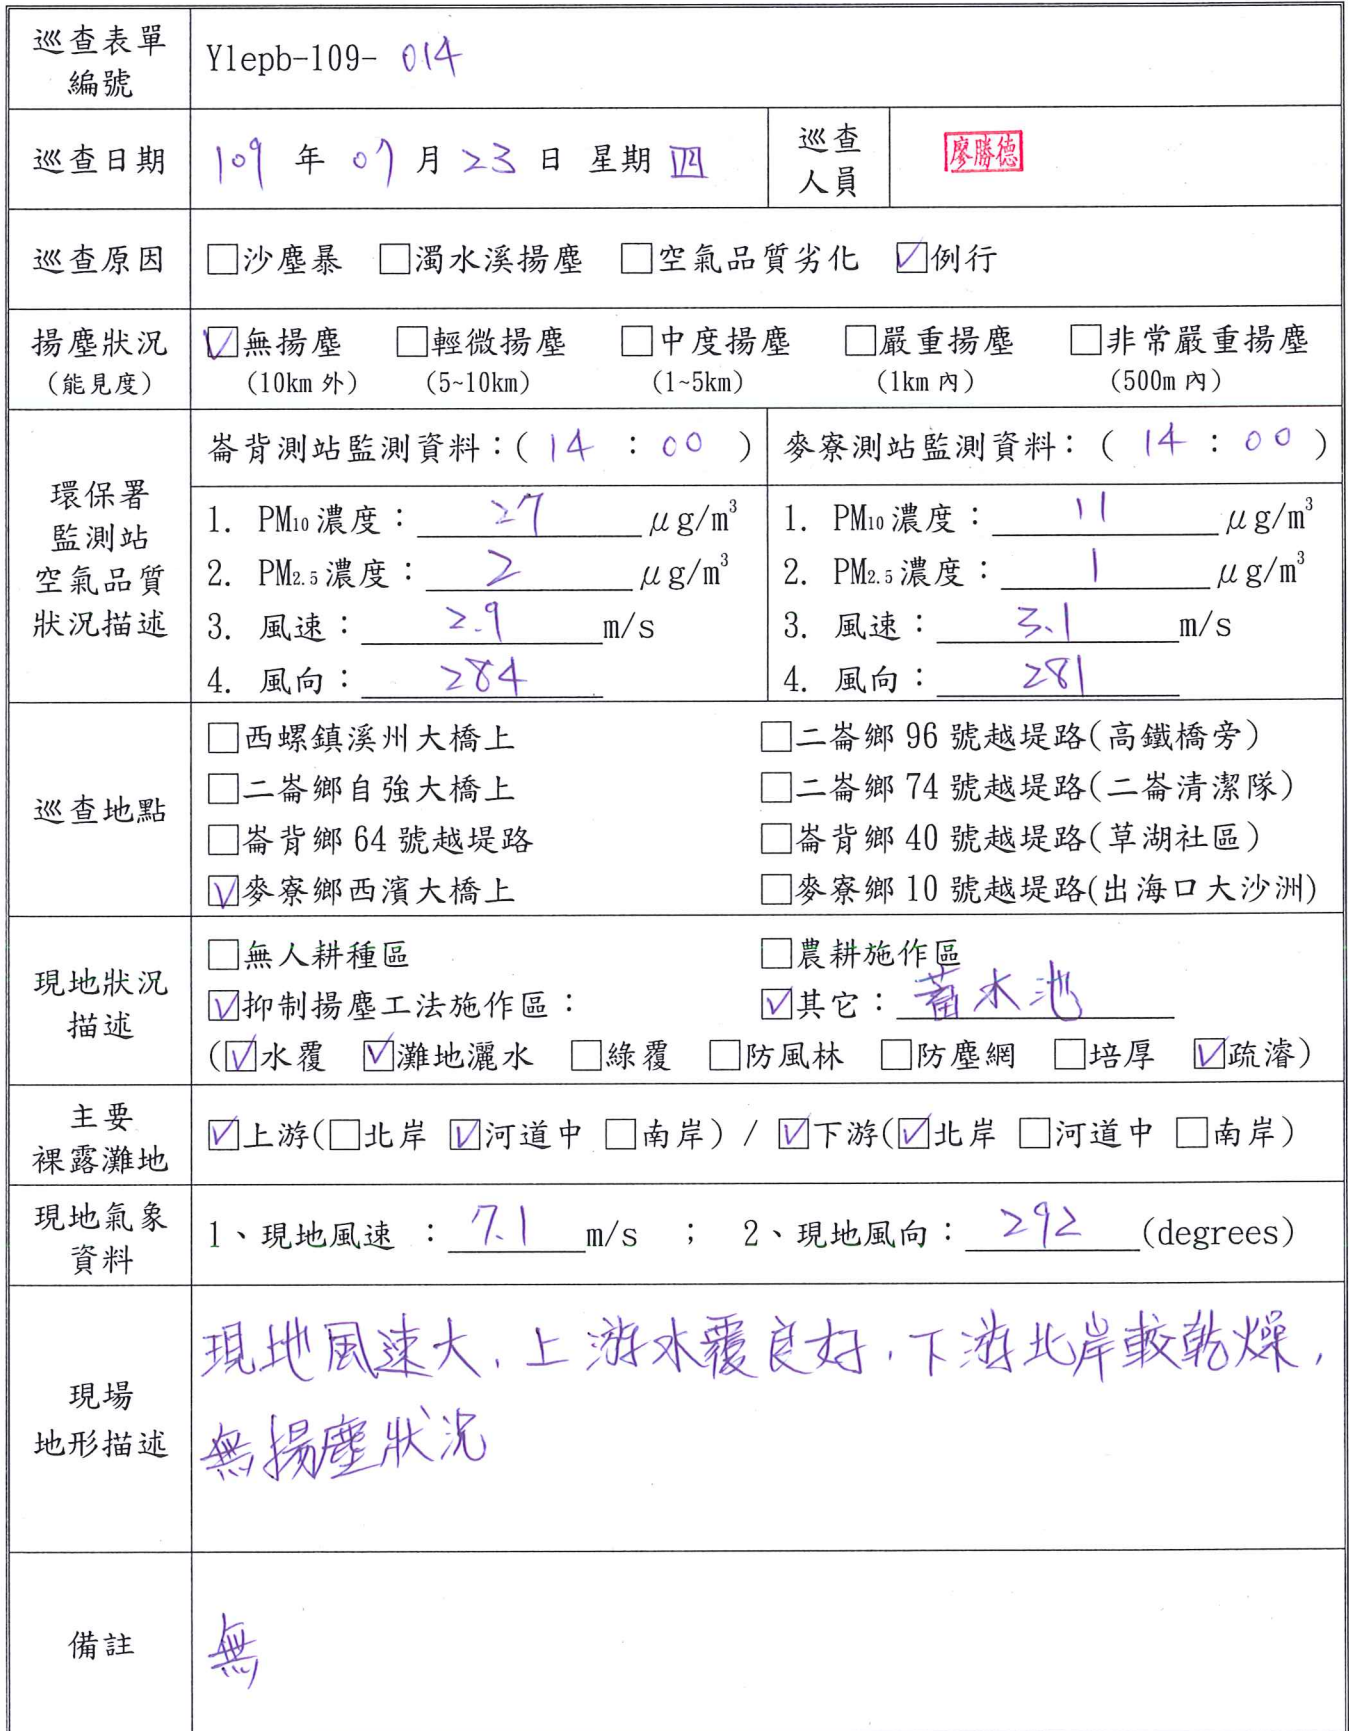 巡查表單
編號
Ylepb-109- 014
巡查日期
109 年 07 月 23 日 星期 四
巡查
人員
廖勝德
巡查原因
□沙塵暴 □濁水溪揚塵 □空氣品質劣化 ☑例行
揚塵狀況
(能見度)
☑無揚塵 □輕微揚塵 □中度揚塵 □嚴重揚塵 □非常嚴重揚塵
(10km 外) (5~10km) (1~5km) (1km 內) (500m 內)
環保署
監測站
空氣品質
狀況描述
崙背測站監測資料：( 14 : 00 )
1. PM10 濃度： 27 μg/m³
2. PM2.5 濃度： 2 μg/m³
3. 風速： 2.9 m/s
4. 風向： 284
麥寮測站監測資料： ( 14 : 00 )
1. PM10 濃度： 11 μg/m³
2. PM2.5 濃度： 1 μg/m³
3. 風速： 3.1 m/s
4. 風向： 281
巡查地點
□西螺鎮溪州大橋上 □二崙鄉 96 號越堤路(高鐵橋旁)
□二崙鄉自強大橋上 □二崙鄉 74 號越堤路(二崙清潔隊)
□崙背鄉 64 號越堤路 □崙背鄉 40 號越堤路(草湖社區)
☑麥寮鄉西濱大橋上 □麥寮鄉 10 號越堤路(出海口大沙洲)
現地狀況
描述
□無人耕種區 □農耕施作區
☑抑制揚塵工法施作區： ☑其它： 蓄水池
(☑水覆 ☑灘地灑水 □綠覆 □防風林 □防塵網 □培厚 ☑疏濬)
主要
裸露灘地
☑上游(□北岸 ☑河道中 □南岸) / ☑下游(☑北岸 □河道中 □南岸)
現地氣象
資料
1、現地風速 ： 7.1 m/s ； 2、現地風向： 292 (degrees)
現場
地形描述
現地風速大, 上游水覆良好, 下游北岸較乾燥,
無揚塵狀況
備註
無